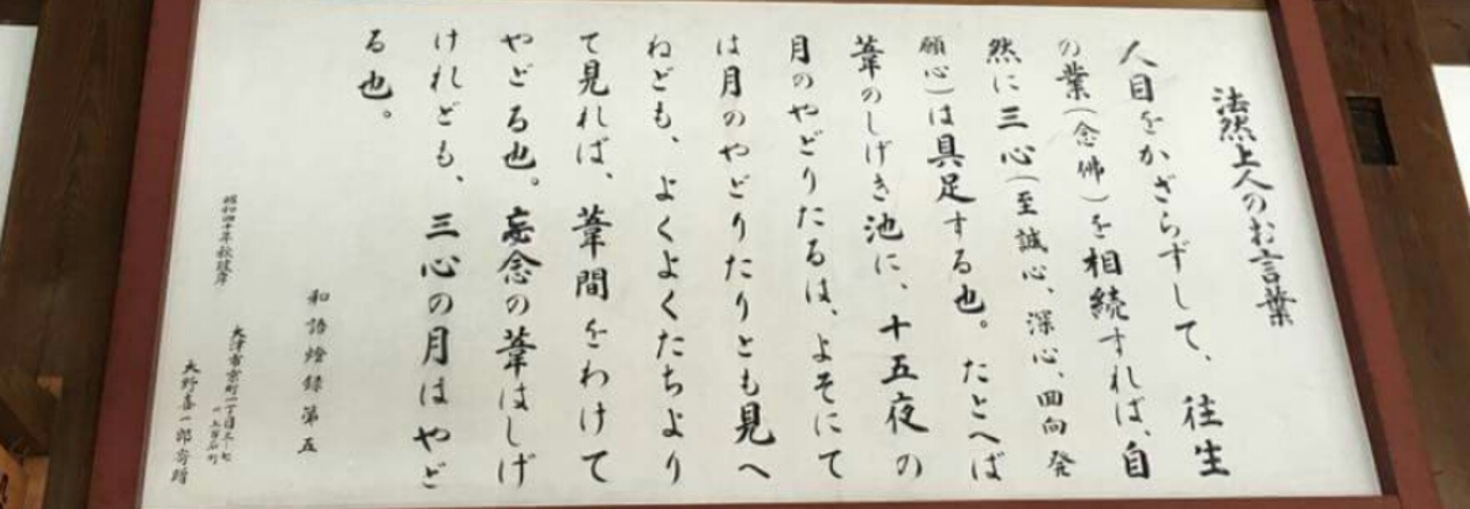 法然上人のお言葉
人目をかざらずして、往生
の業(念佛)を相続すれば、自
然に三心(至誠心、深心、回向発
願心)は具足する也。たとへば
葦のしげき池に、十五夜の
月のやどりたるは、よそにて
は月のやどりたりとも見へ
ねども、よくよくたちより
て見れば、葦間をわけて
やどる也。妄念の葦はしげ
けれども、三心の月はやど
る也。
和語燈録第五
昭和四十年秋彼岸
大津市京町一丁目三ノ七
大野喜一郎寄贈